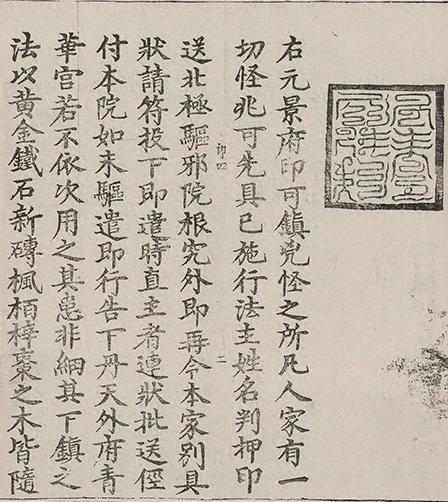 右元景府印可鎮兇怪之所凡人家有一
切怪兆可先具已施行法主姓名判押印
印四
二
送北極驅邪院根究外即再令本家別具
狀請符投下即遣時直主者連狀批送徑
付本院如未驅遣即行告下丹天外府青
華宮若不依次用之其患非細其下鎮之
法以黃金鐵石新磚楓栢梓棗之木皆隨